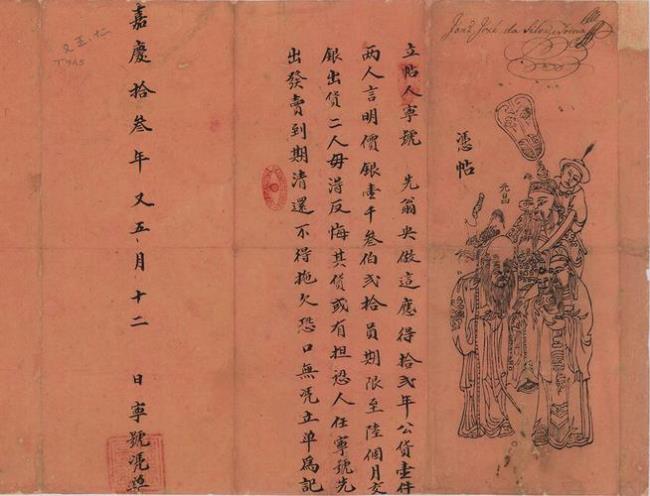 José da Silva
憑帖
立帖人寧號 先翁央做這應得拾貳年公貨壹件
兩人言明價銀壹千叁伯貳拾員期限至陸個月交
銀出貨二人毋得反悔其貨或有担人任寧號先
出發賣到期清還不得拖欠恐口無凴立单為記
嘉慶拾叁年又五月十二 日寧號凴
又五.十二